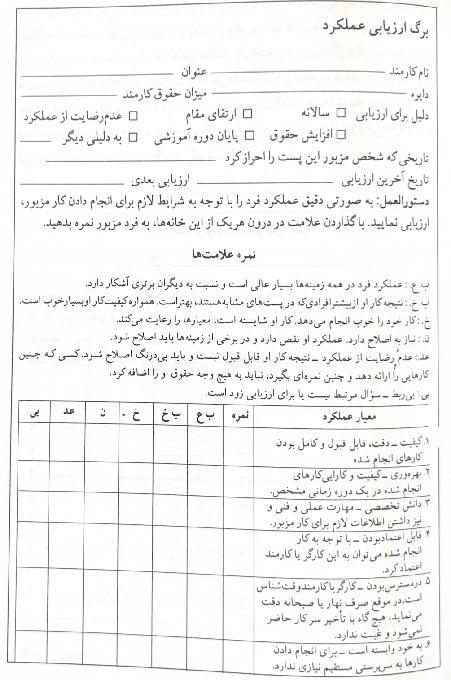 برگ ارزیابی عملکرد
نام کارمند عنوان
دایره میزان حقوق کارمند
دلیل برای ارزیابی □ سالانه □ ارتقای مقام □ عدم‌رضایت از عملکرد
□ افزایش حقوق □ پایان دوره آموزشی □ به دلیلی دیگر
تاریخی که شخص مزبور این پست را احراز کرد
تاریخ آخرین ارزیابی ارزیابی بعدی
دستورالعمل: به صورتی دقیق عملکرد فرد را با توجه به شرایط لازم برای انجام دادن کار مزبور،
ارزیابی نمایید. با گذاردن علامت در درون هریک از این خانه‌ها، به فرد مزبور نمره بدهید.
نمره علامت‌ها
ب ع: عملکرد فرد در همه زمینه‌ها بسیار عالی است و نسبت به دیگران برتری آشکار دارد.
ب خ.: نتیجه کار او از بیشتر افرادی که در پست‌های مشابه هستند، بهتر است. همواره کیفیت کار او بسیار خوب است.
خ.: کار خود را خوب انجام می‌دهد. کار او شایسته است، معیارها، را رعایت می‌کند.
ن.: نیاز به اصلاح دارد. عملکرد او نقص دارد و در برخی از زمینه‌ها باید اصلاح شود.
عد: عدم رضایت از عملکرد ـ نتیجه کار او قابل قبول نیست و باید بی‌درنگ اصلاح شود. کسی که چنین
کارهایی را ارائه دهد و چنین نمره‌ای بگیرد، نباید به هیچ وجه حقوق او را اضافه کرد.
بی: بی‌ربط ـ سؤال مرتبط نیست یا برای ارزیابی زود است.
معیار عملکرد نمره ب ع ب خ خ - ن عد بی
۱. کیفیت ـ دقت، قابل قبول و کامل بودن
کارهای انجام شده
۲. بهره‌وری ـ کیفیت و کارایی کارهای
انجام شده در یک دوره زمانی مشخص.
۳. دانش تخصصی ـ مهارت عملی و فنی و
نیز داشتن اطلاعات لازم برای کار مزبور.
۴. قابل اعتماد بودن ـ با توجه به کار
انجام شده می‌توان به این کارگر یا کارمند
اعتماد کرد.
۵. در دسترس بودن ـ کارگر یا کارمند وقت‌شناس
است، در موقع صرف نهار یا صبحانه دقت
می‌نماید، هیچ گاه با تأخیر سر کار حاضر
نمی‌شود و غیبت ندارد.
۶. به خود وابسته است ـ برای انجام دادن
کارها به سرپرستی مستقیم نیازی ندارد.